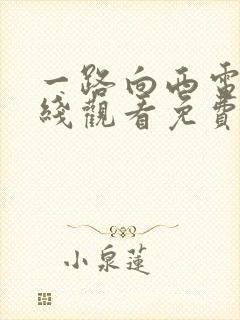 一路向西電
綫觀看免費
小泉蓮